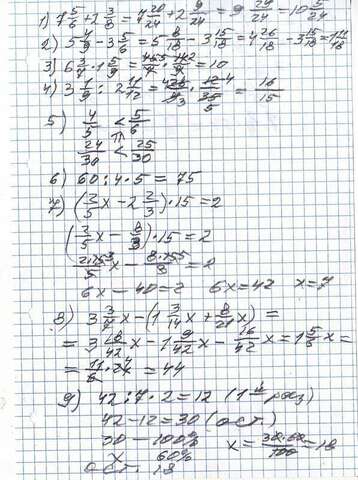 1) 7 5/6 + 2 3/8 = 7 20/24 + 2 9/24 = 9 29/24 = 10 5/24
2) 5 4/9 - 3 5/6 = 5 8/18 - 3 15/18 = 4 26/18 - 3 15/18 = 1 11/18
3) 6 3/7 · 1 5/9 = 45/7 · 14/9 = 10
4) 3 1/9 : 2 11/12 = 28/9 · 12/35 = 16/15
5) 4/5 < 5/6
24/30 < 25/30
6) 60 : 4 · 5 = 75
7) (3/5 x - 2 2/3) · 15 = 2
(3/5 x - 8/3) · 15 = 2
6x - 40 = 2 6x = 42 x = 7
8) 3 3/7 x - (1 3/14 x + 8/21 x) =
= 3 18/42 x - 1 9/42 x - 16/42 x = 1 5/6 x =
= 11/6 · 24 = 44
9) 42 : 7 · 2 = 12 (1 раз)
42 - 12 = 30 (ост.)
30 - 100%
x 60%
x = 30·60/100 = 18
ост. 18